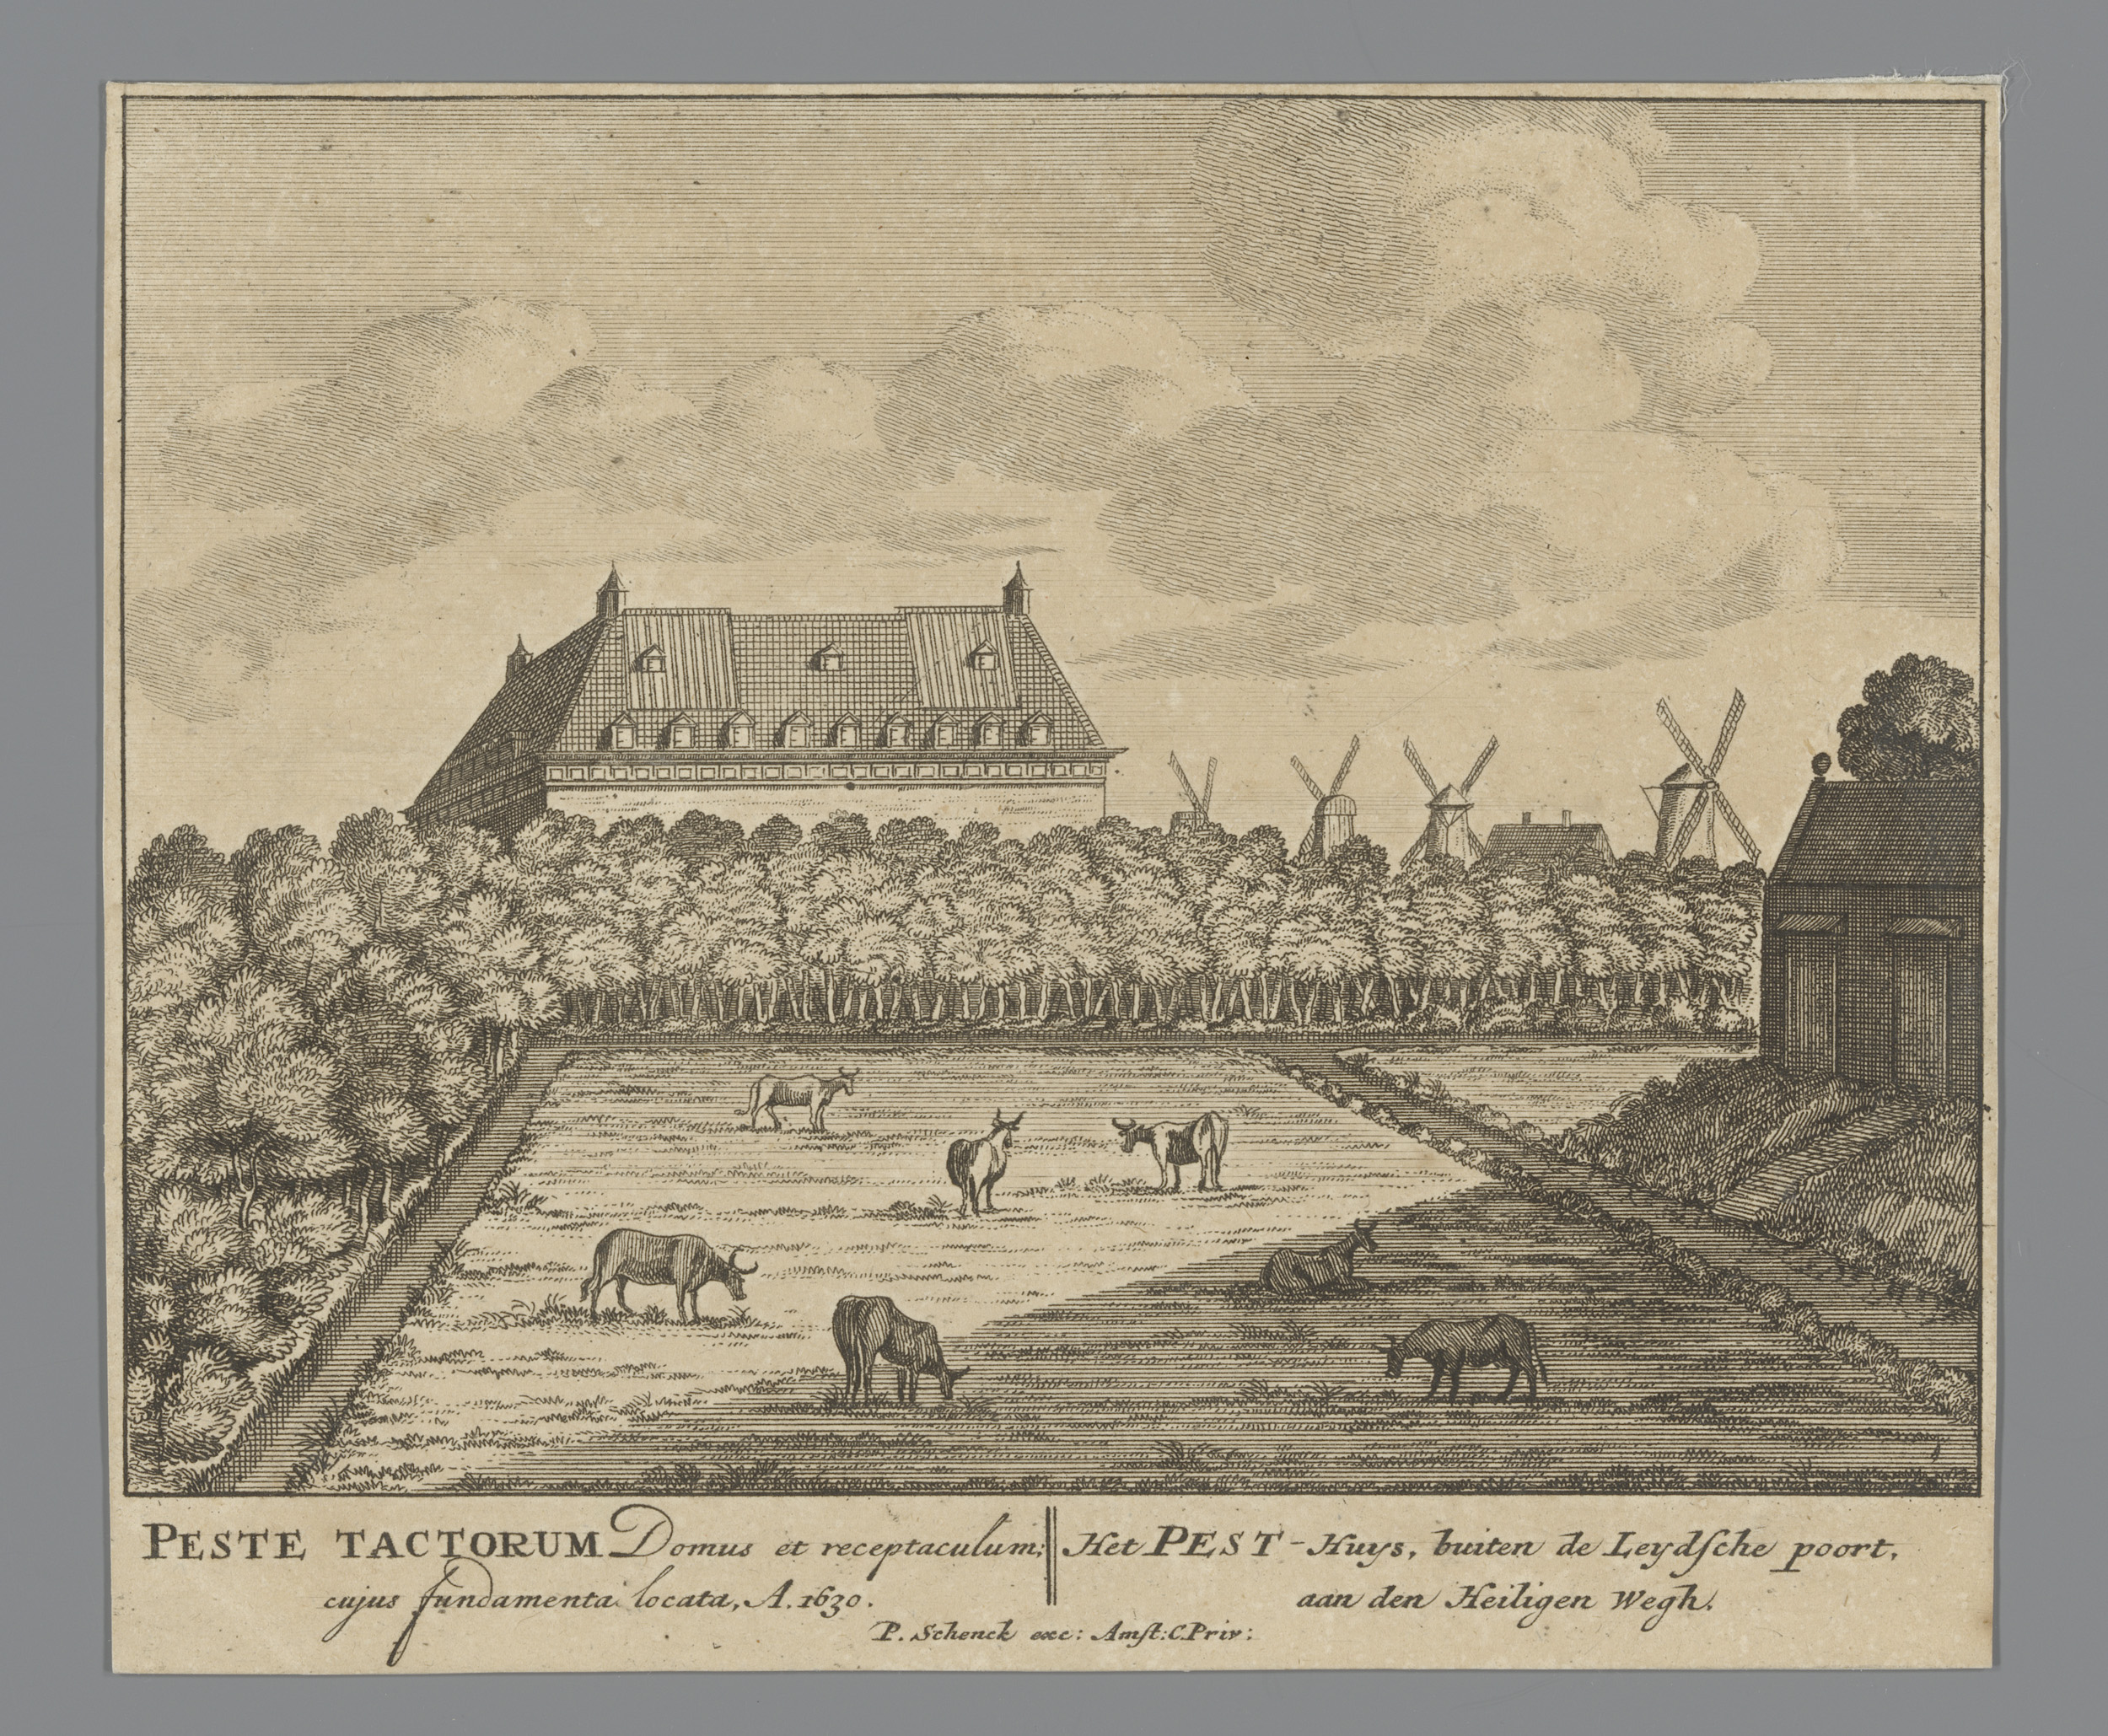 PESTE TACTORUM Domus et receptaculum;
cujus fundamenta locata, A. 1630.
Het PEST-Huys, buiten de Leydſche poort,
aan den Heiligen Wegh.
P. Schenck exc: Amſt: C. Priv: